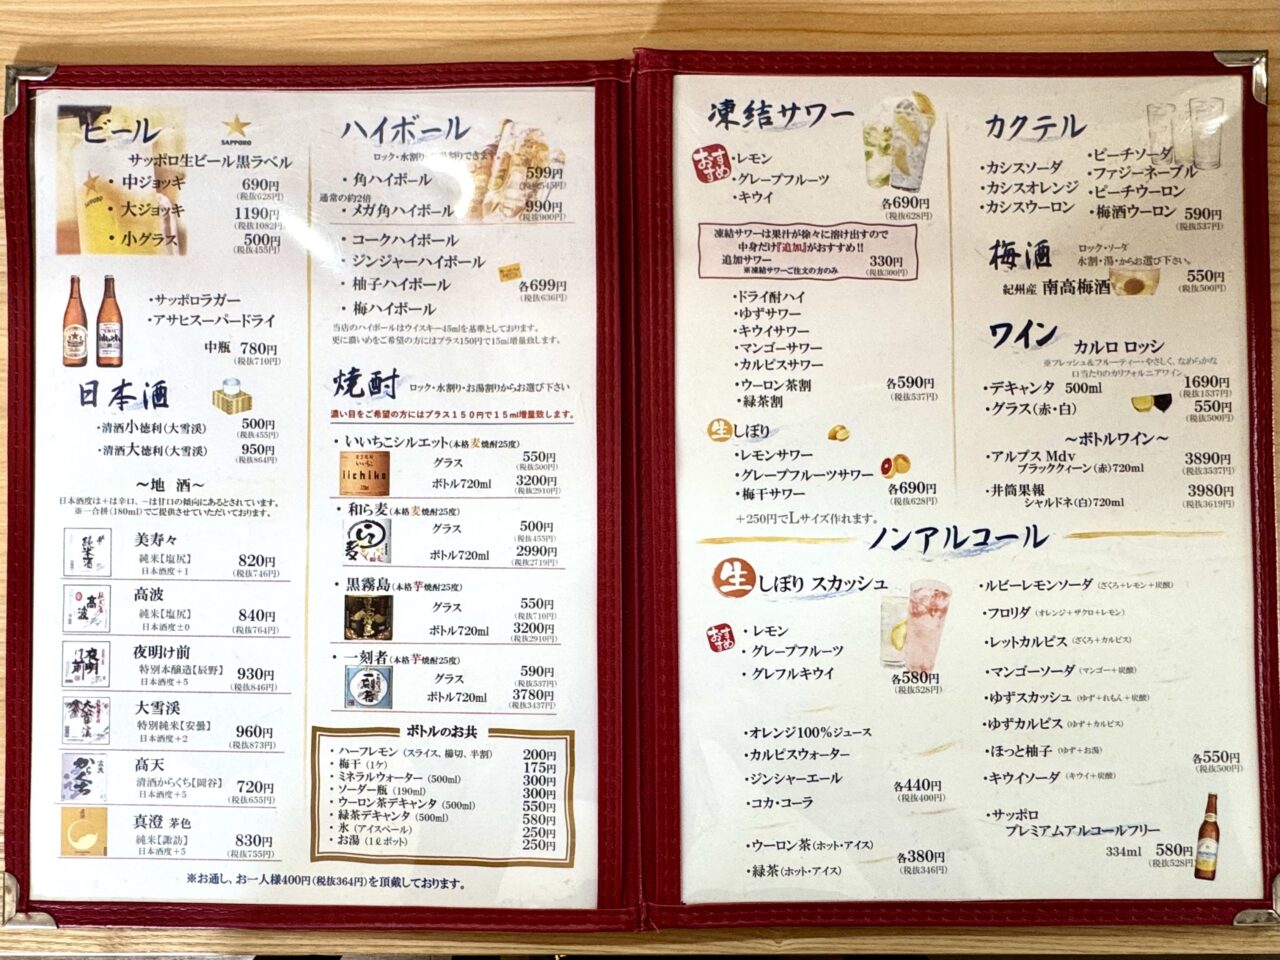 ビール
SAPPORO
サッポロ生ビール黒ラベル
・中ジョッキ 690円
(税抜628円)
・大ジョッキ 1190円
(税抜1082円)
・小グラス 500円
(税抜455円)
・サッポロラガー
・アサヒスーパードライ
中瓶 780円
(税抜710円)
日本酒
・清酒小徳利(大雪渓) 500円
(税抜455円)
・清酒大徳利(大雪渓) 950円
(税抜864円)
～地 酒～
日本酒度は+は辛口、−は甘口の傾向にあるとされています。
※一合枡(180ml)でご提供させていただいております。
美寿々
純米【塩尻】 820円
日本酒度+1 (税抜746円)
高波
純米【塩尻】 840円
日本酒度±0 (税抜764円)
夜明け前
特別本醸造【辰野】 930円
日本酒度+5 (税抜846円)
大雪渓
特別純米【安曇】 960円
日本酒度+2 (税抜873円)
高天
清酒からくち【岡谷】 720円
日本酒度+5 (税抜655円)
真澄 茅色
純米【諏訪】 830円
日本酒度+5 (税抜755円)
ハイボール
ロック・水割り・お湯割りできます。
・角ハイボール 599円
(税抜545円)
通常の約2倍
・メガ角ハイボール 990円
(税抜900円)
・コークハイボール
・ジンジャーハイボール
・柚子ハイボール 各699円
(税抜636円)
・梅ハイボール
当店のハイボールはウイスキー45mlを基準としております。
更に濃いめをご希望の方にはプラス150円で15ml増量致します。
焼酎 ロック・水割り・お湯割りからお選び下さい
濃い目をご希望の方にはプラス150円で15ml増量致します。
・いいちこシルエット(本格麦焼酎25度)
iichiko
グラス 550円
(税抜500円)
ボトル720ml 3200円
(税抜2910円)
・和ら麦(本格麦焼酎25度)
グラス 500円
(税抜455円)
ボトル720ml 2990円
(税抜2719円)
・黒霧島(本格芋焼酎25度)
グラス 550円
(税抜710円)
ボトル720ml 3200円
(税抜2910円)
・一刻者(本格芋焼酎25度)
グラス 590円
(税抜537円)
ボトル720ml 3780円
(税抜3437円)
ボトルのお共
・ハーフレモン(スライス、櫛切、半割) 200円
・梅干(1ケ) 175円
・ミネラルウォーター(500ml) 300円
・ソーダー瓶(190ml) 300円
・ウーロン茶デキャンタ(500ml) 550円
・緑茶デキャンタ(500ml) 580円
・氷(アイスペール) 250円
・お湯(1ℓポット) 250円
※お通し、お一人様400円(税抜364円)を頂戴しております。
凍結サワー
おすすめ
・レモン
・グレープフルーツ
・キウイ 各690円
(税抜628円)
凍結サワーは果汁が徐々に溶け出すので
中身だけ『追加』がおすすめ!!
追加サワー 330円
※凍結サワーご注文の方のみ (税抜300円)
・ドライ酎ハイ
・ゆずサワー
・キウイサワー
・マンゴーサワー
・カルピスサワー
・ウーロン茶割 各590円
(税抜537円)
・緑茶割
生しぼり
・レモンサワー
・グレープフルーツサワー
・梅干サワー 各690円
(税抜628円)
+250円でLサイズ作れます。
カクテル
・カシスソーダ
・カシスオレンジ
・カシスウーロン
・ピーチソーダ
・ファジーネーブル
・ピーチウーロン
・梅酒ウーロン 590円
(税抜537円)
梅酒 ロック・ソーダ
水割・湯・からお選び下さい。
紀州産 南高梅酒 550円
(税抜500円)
ワイン カルロ ロッシ
※フレッシュ&フルーティー・やさしく、なめらかな
口当たりのカリフォルニアワイン
・デキャンタ 500ml 1690円
(税抜1537円)
・グラス(赤・白) 550円
(税抜500円)
～ボトルワイン～
・アルプス Mdv 3890円
ブラッククィーン(赤)720ml (税抜3537円)
・井筒果報 3980円
シャルドネ(白)720ml (税抜3619円)
ノンアルコール
生しぼり スカッシュ
おすすめ
・レモン
・グレープフルーツ
・グレフルキウイ 各580円
(税抜528円)
・オレンジ100%ジュース
・カルピスウォーター
・ジンシャーエール 各440円
(税抜400円)
・コカ・コーラ
・ウーロン茶(ホット・アイス) 各380円
・緑茶(ホット・アイス) (税抜346円)
・ルビーレモンソーダ(ざくろ+レモン+炭酸)
・フロリダ(オレンジ+ザクロ+レモン)
・レットカルピス(ざくろ+カルピス)
・マンゴーソーダ(マンゴー+炭酸)
・ゆずスカッシュ(ゆず+れもん+炭酸)
・ゆずカルピス(ゆず+カルピス)
・ほっと柚子(ゆず+お湯) 各550円
(税抜500円)
・キウイソーダ(キウイ+炭酸)
・サッポロ
プレミアムアルコールフリー
334ml 580円
(税抜528円)